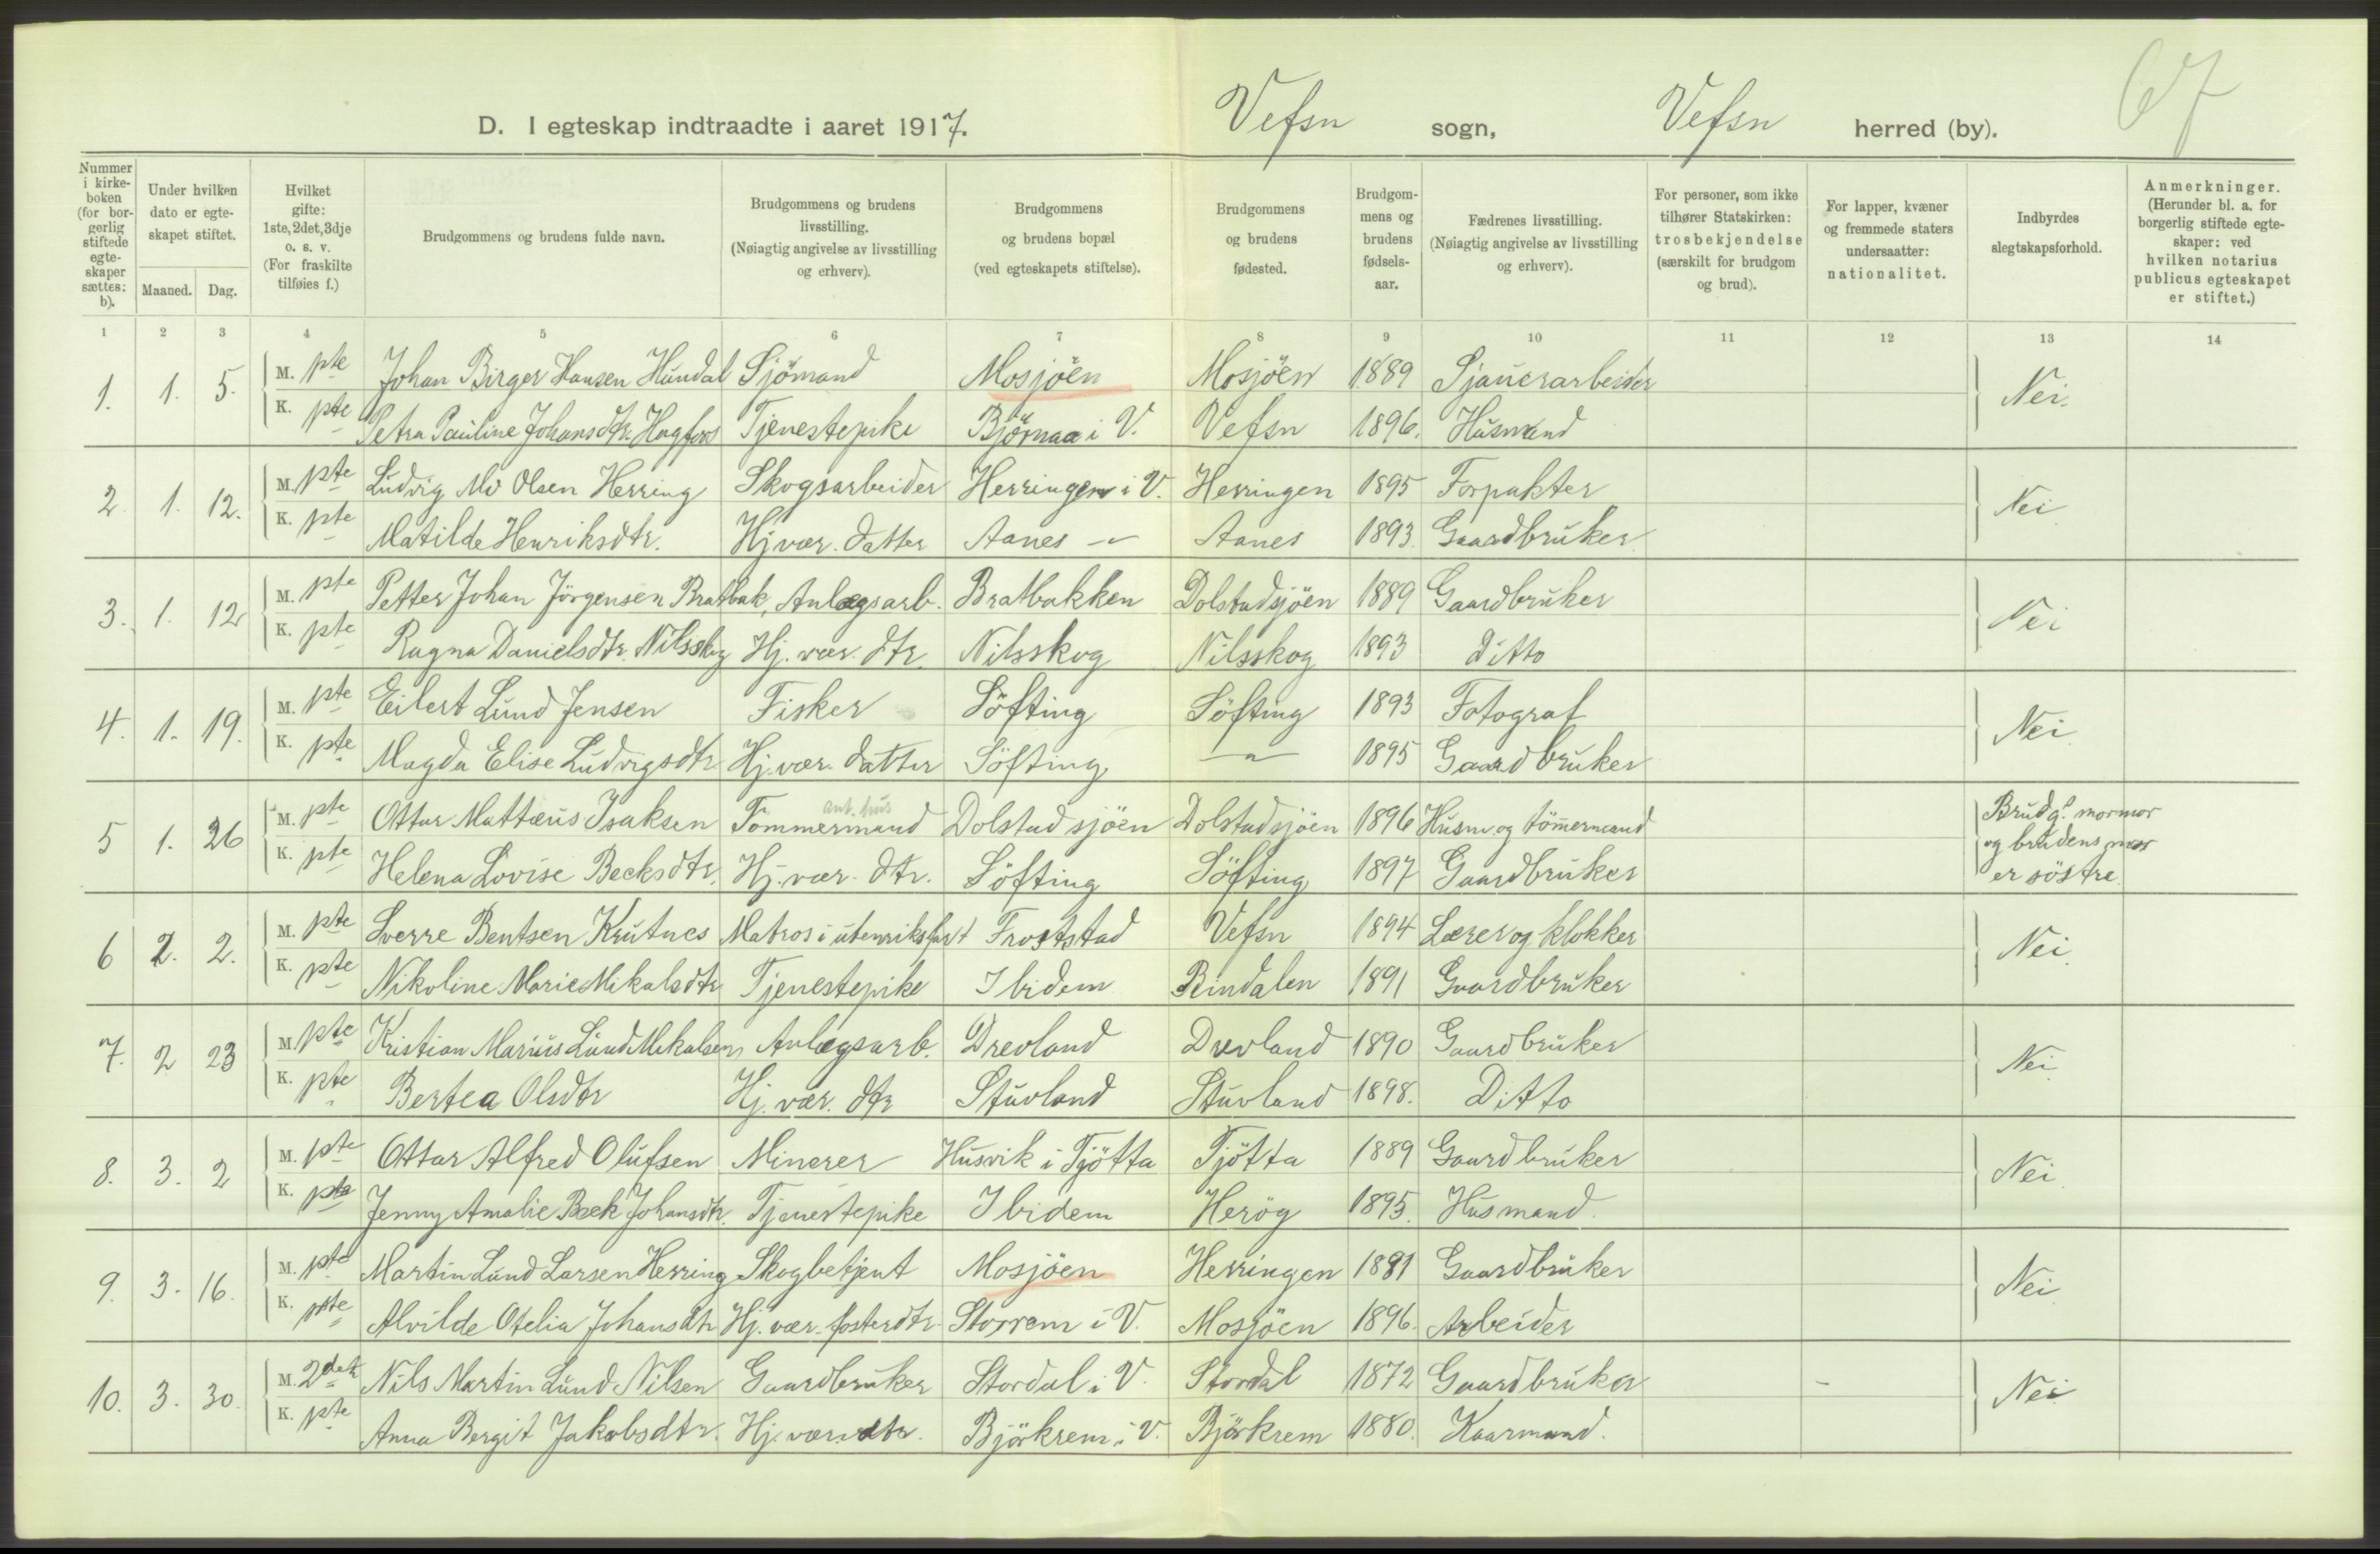 67
D. I egteskap indtraadte i aaret 1917. Vefsn sogn, Vefsn herred (by).
Nummer i kirke- boken (for bor- gerlig stiftede egte- skaper sættes: b).
Under hvilken dato er egte- skapet stiftet.
Maaned. Dag.
Hvilket gifte: 1ste, 2det, 3dje o. s. v. (For fraskilte tilføies f.)
Brudgommens og brudens fulde navn.
Brudgommens og brudens livsstilling. (Nøiagtig angivelse av livsstilling og erhverv).
Brudgommens og brudens bopæl (ved egteskapets stiftelse).
Brudgommens og brudens fødested.
Brudgom- mens og brudens fødsels- aar.
Fædrenes livsstilling. (Nøiagtig angivelse av livsstilling og erhverv).
For personer, som ikke tilhører Statskirken: trosbekjendelse (særskilt for brudgom og brud).
For lapper, kvæner og fremmede staters undersaatter: nationalitet.
Indbyrdes slegtskapsforhold.
Anmerkninger. (Herunder bl. a. for borgerlig stiftede egte- skaper: ved hvilken notarius publicus egteskapet er stiftet.)
1 2 3 4 5 6 7 8 9 10 11 12 13 14
1. 1. 5. M. pte Johan Birger Hansen Hundal Sjömand Mosjöen Mosjöen 1889 Sjauerarbeider Nei.
K. pte Petra Pauline Johansdtr. Hagfors Tjenestepike Björnaa i V. Vefsn 1896. Husmand
2. 1. 12. M. pte Ludvig Olsen Herring Skogsarbeider Herringen i V. Herringen 1895 Forpakter Nei
K. pte Matilde Henriksdtr. Hjvær. datter Aanes -"- Aanes 1893. Gaardbruker
3. 1. 12 M. pte Petter Johan Jörgensen Bratbak, Anlægsarb. Bratbakken Dolstadsjöen 1889 Gaardbruker Nei
K. pte Ragna Danielsdtr. Nilsskog Hj. vær. dtr. Nilsskog Nilsskog 1893 Ditto
4. 1. 19. M. pte Eilert Lund Jensen Fisker Söfting Söfting 1893 Fotograf Nei
K. pte Magda Elise Ludvigsdtr Hj. vær. datter Söfting -"- 1895 Gaardbruker
ant. hus
5 1. 26 M. pte Ottar Mattæus Isaksen Tömmermand Dolstadsjöen Dolstadsjöen 1896 Husm. og tömmermand Brudg.s mormor
og brudens mor
K. pte Helena Lovise Becksdtr. Hj. vær. dtr. Söfting Söfting 1897 Gaardbruker er söstre
6 2. 2. M. pte Sverre Bentsen Krutnes Matros i utenriksfart Froststad Vefsn 1894 Lærer og klokker Nei.
K. pte Nikoline Marie Mikalsdtr Tjenestepike Ibidem Bindalen 1891 Gaardbruker
7. 2 23 M. pte Kristian Marius Lund Mikalsen Anlægsarb. Drevland Drevland 1890 Gaardbruker Nei
K. pte Bertea Olsdtr Hj. vær. dtr Stuvland Stuvland 1898. Ditto
8. 3. 2 M. pte Ottar Alfred Olufsen Minerer Husvik i Tjötta Tjötta 1889 Gaardbruker Nei
K. pte Jenny Amalie Beck Johansdtr. Tjenestepike Ibidem Heröy 1895. Husmand.
9. 3. 16. M. pte Martin Lund Larsen Herring Skogbetjent Mosjöen Herringen 1881 Gaardbruker Nei
K. pte Alvilde Otelia Johansdtr Hj. vær. fosterdtr. Storrem i V. Mosjöen 1896. Arbeider
10. 3. 30. M. 2det Nils Martin Lund Nilsen Gaardbruker Stordal i V. Stordal 1872 Gaardbruker - Nei
K. pte Anna Bergit Jakobsdtr. Hj. vær. dtr. Björkrem i V. Björkrem 1880. Kaarmand.